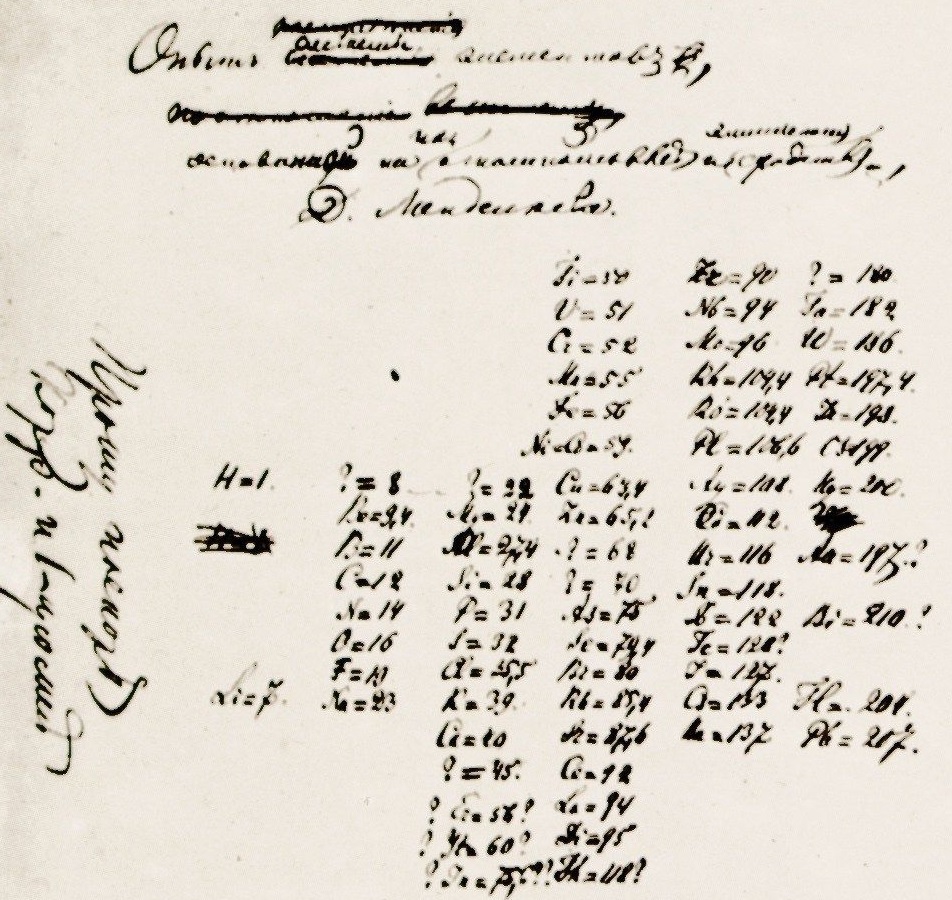 Опытъ системы элементовъ,
основанной на ихъ атомномъ вѣсѣ и химическомъ сходствѣ,
Д. Менделѣевъ.
Ti=50 Zr=90 ?=180
V=51 Nb=94 Ta=182
Cr=52 Mo=96 W=186.
Mn=55 Rh=104,4 Pt=197,4.
Fe=56 Ru=104,4 Ir=198.
Ni=Co=59. Pl=106,6 Os=199.
H=1. ?=8 ?=22 Cu=63,4 Ag=108. Hg=200.
Be=9,4 Mg=24. Zn=65,2 Cd=112.
B=11 Al=27,4 ?=68 Ur=116 Au=197?
C=12 Si=28 ?=70 Sn=118.
N=14 P=31 As=75 Sb=122 Bi=210?
O=16 S=32 Se=79,4 Te=128?
F=19 Cl=35,5 Br=80 J=127.
Li=7. Na=23 K=39. Rb=85,4 Cs=133 Tl=204.
Ca=40 Sr=87,6 Ba=137 Pb=207.
?=45. Ce=92
?Er=56? La=94
?Yt=60? Di=95
?In=75,6?? Th=118?